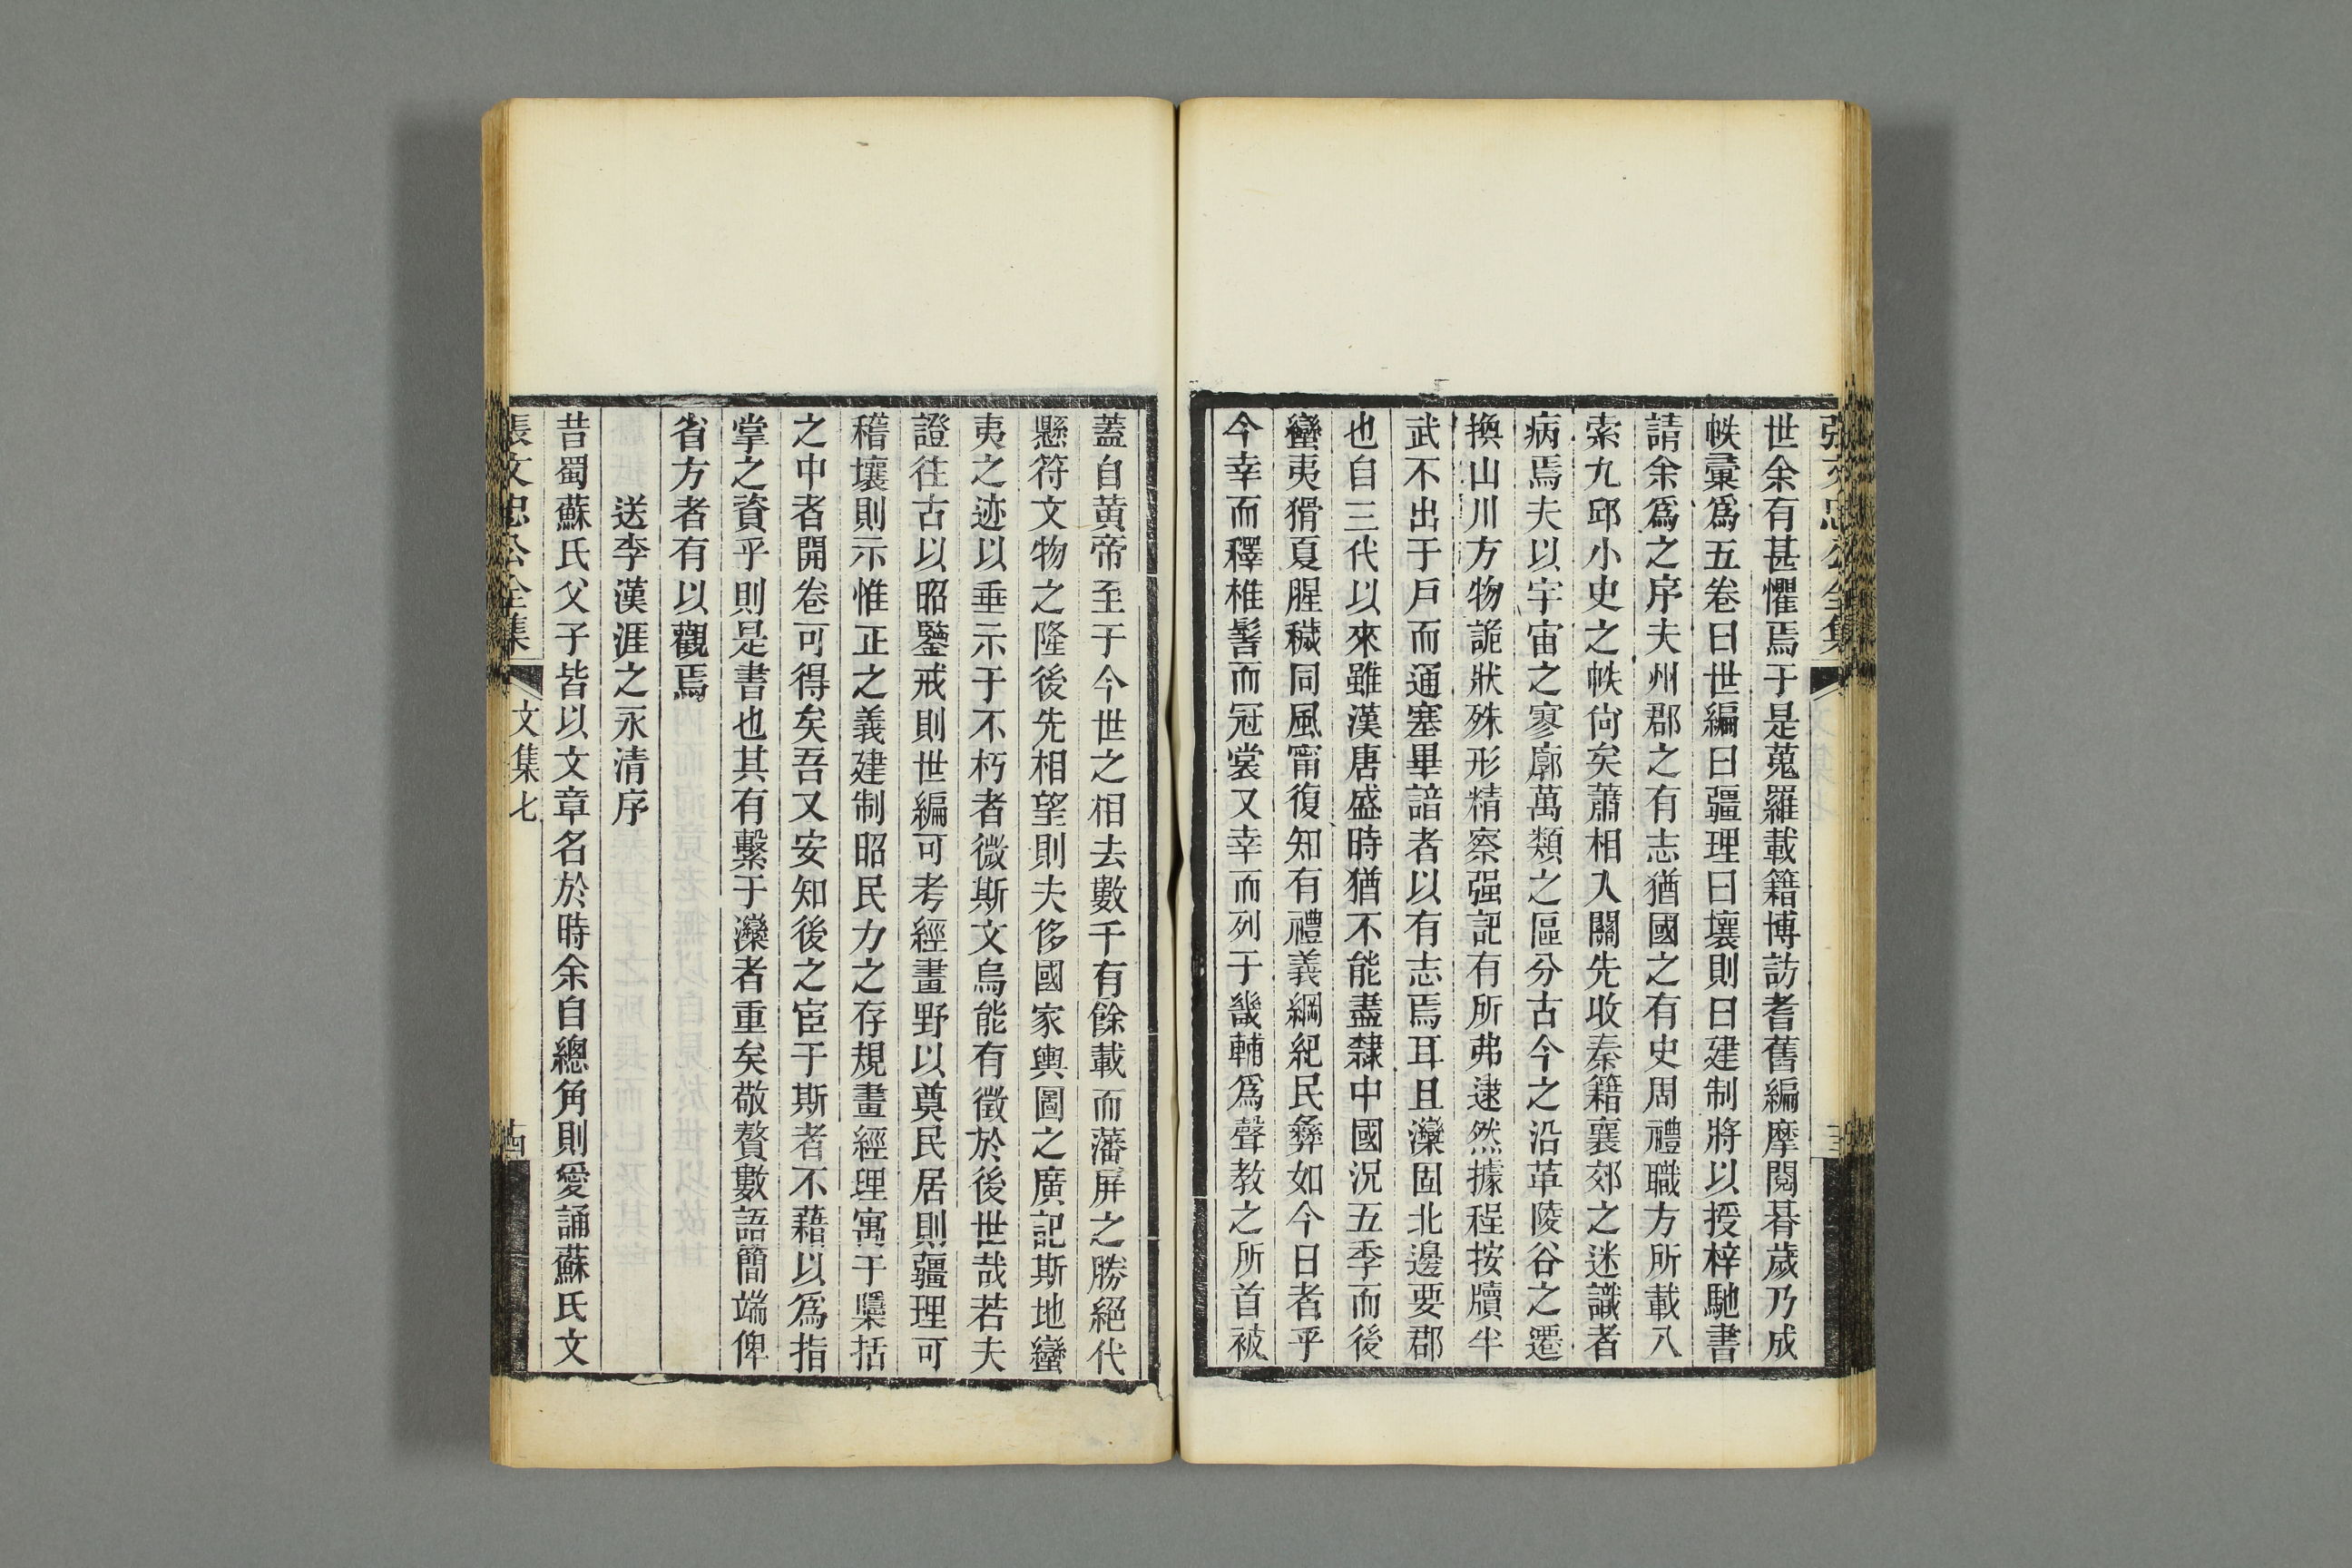 張文忠公全集
世余有甚懼焉于是蒐羅載籍博訪耆舊編摩閱朞歲乃成
帙彙爲五卷曰世編曰疆理曰壤則曰建制將以授梓馳書
請余爲之序夫州郡之有志猶國之有史周禮職方所載八
索九邱小史之帙尙矣蕭相入關先收秦籍襄郊之迷識者
病焉夫以宇宙之寥廓萬類之區分古今之沿革陵谷之遷
換山川方物詭狀殊形精察强記有所弗逮然據程按牘半
武不出于戸而通塞畢諳者以有志焉耳且灤固北邊要郡
也自三代以來雖漢唐盛時猶不能盡隸中國況五季而後
蠻夷猾夏腥穢同風甯復知有禮義綱紀民彝如今日者乎
今幸而釋椎髻而冠裳又幸而列于畿輔爲聲教之所首被
蓋自黃帝至于今世之相去數千有餘載而藩屏之勝絕代
懸符文物之隆後先相望則夫侈國家輿圖之廣記斯地蠻
夷之迹以垂示于不朽者微斯文烏能有徵於後世哉若夫
證往古以昭鑒戒則世編可考經畫野以奠民居則疆理可
稽壤則示惟正之義建制昭民力之存規畫經理寓于檃括
之中者開卷可得矣吾又安知後之宦于斯者不藉以爲指
掌之資乎則是書也其有繫于灤者重矣敬贅數語簡端俾
省方者有以觀焉
送李漢涯之永清序
昔蜀蘇氏父子皆以文章名於時余自總角則愛誦蘇氏文
張文忠公全集 文集七 十四